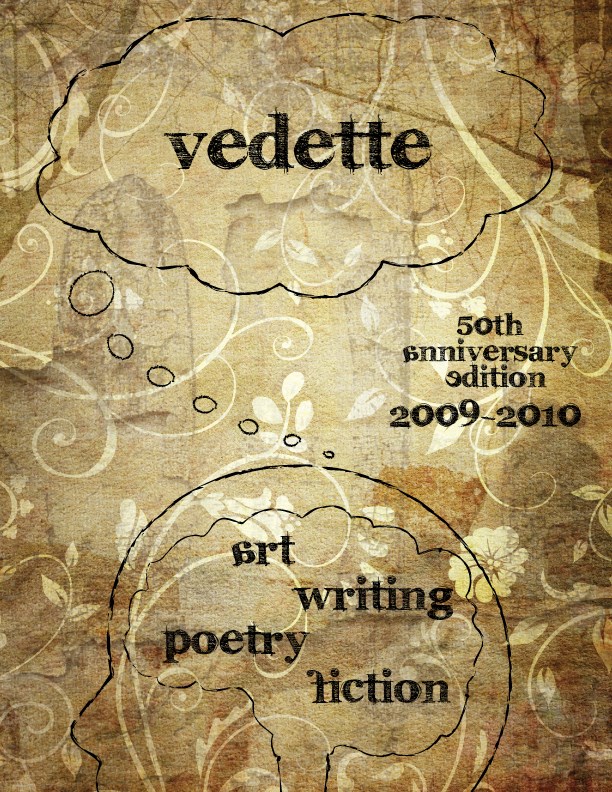 vedette
50th
anniversary
edition
2009-2010
art
writing
poetry
fiction